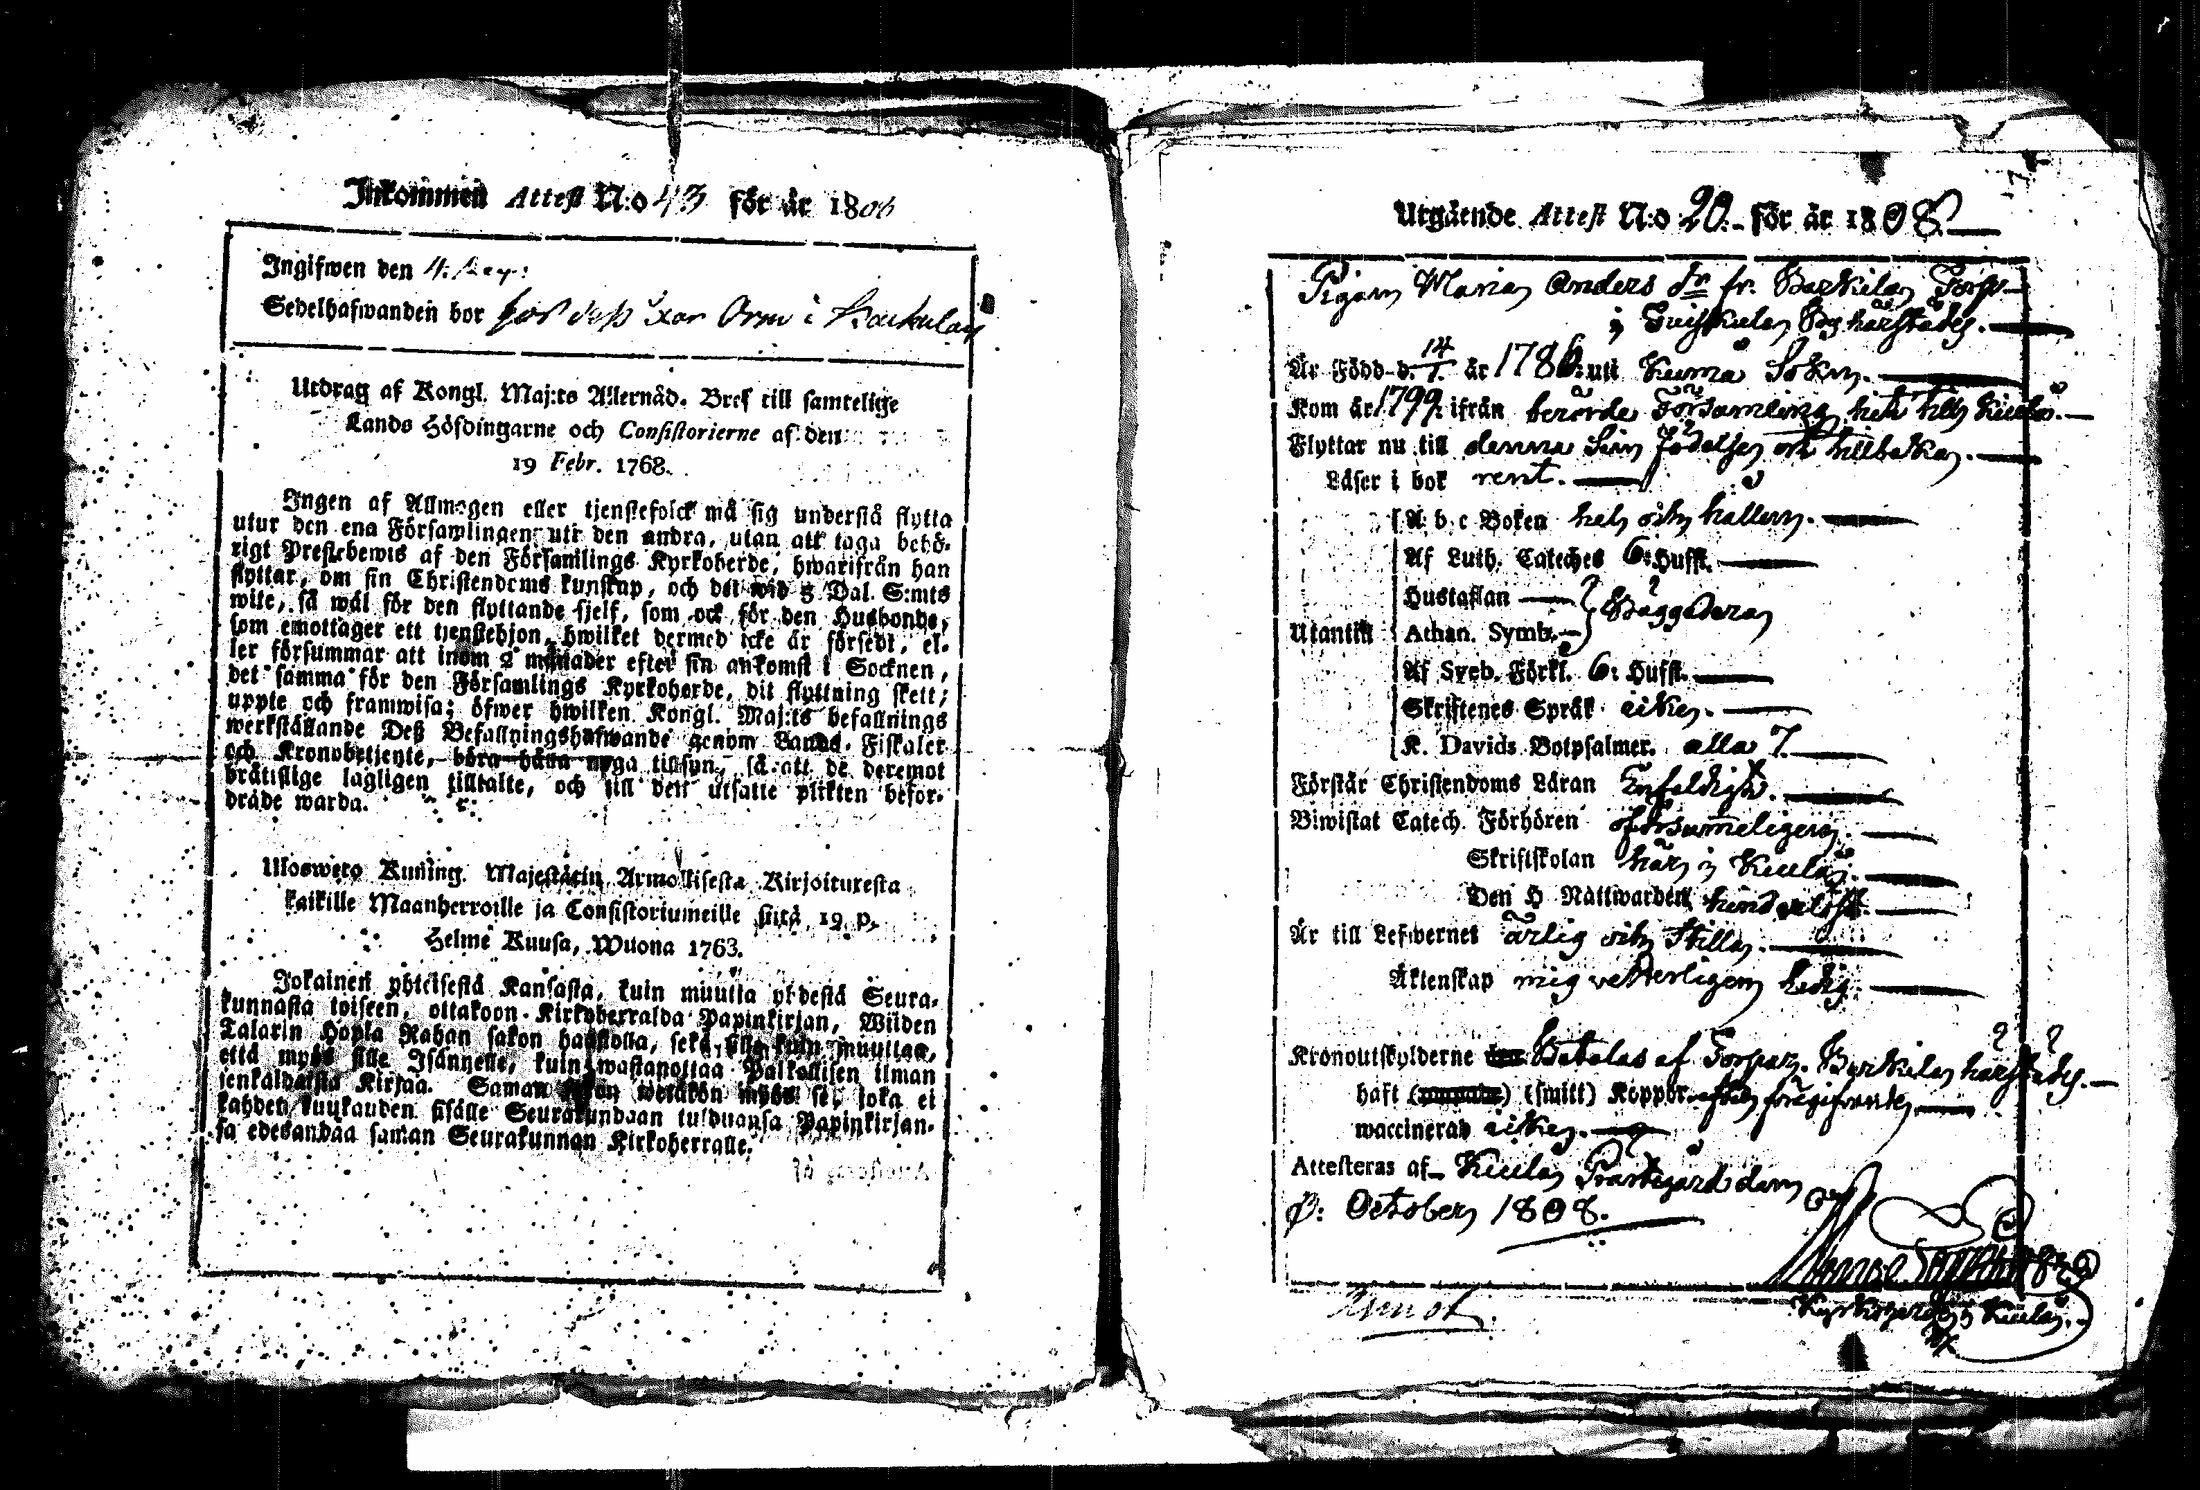 Inkommen Attest N:o 43 för år 1806
Ingifwen den 4.
Sedelhafwanden bor hos dess i
Utdrag af Kongl. Maj:ts Allernåd. Bref till samtelige
Lands Höfdingarne och Consistorierne af den
19 Febr. 1768.
Ingen af Allmogen eller tjenstefolck må sig understå flytta
utur den ena Församlingen uti den andra, utan att taga behö-
rigt Prestebewis af den Församlings Kyrkoherde, hwarifrån han
flyttar, om sin Christendoms kunskap, och det wid 5 Dal. S:mts
wite, så wäl för den flyttande sjelf, som ock för den Husbonde,
som emottager ett tjenstehjon, hwilket dermed icke är försedt, el-
ler försummar att inom 2 månader efter sin ankomst i Socknen,
det samma för den Församlings Kyrkoherde, dit flyttning skett;
uppte och framwisa; öfwer hwilken Kongl. Maj:ts befallnings
werkställande Deß Befallningshafwande genom Lands-Fiskaler
och Kronobetjente, böra hålla noga tillsyn, så att de deremot
brättslige lagligen tilltalte, och till den utsatte plikten befor-
drade warda.
Uloswero Kuning. Majestätin Armollisesta Kirjoituresta
kaikille Maanherroille ja Consistoriumeille siitä 19 p.
Helme Kuusa, Wuona 1763.
Jokainen yhteisestä Kansasta, kuin muutta yhdestä Seura-
kunnasta toiseen, ottakoon Kirkoherralda Papinkirjan, Wiiden
Talarin Hopia Rahan sakon haastolla, sekä sille kuin muuttaa,
että myös sille Isännelle, kuin wastanottaa Palkollisen ilman
senkaldaista Kirjaa. Saman sakon wetäkön myös se, joka ei
kahden kuukauden sisälle Seurakundaan tulduansa Papinkirjan-
sa edesandaa saman Seurakunnan Kirkoherralle.
Utgående Attest N:o 20. för år 1808.
Pigan Maria Anders Dr fr. Barkila Torp
i By härstädes.
Är Född d. 14/1. år 1786. uti Kumo Sokn.
Kom år 1799. ifrån berörde Församling hit till Kiulo.
Flyttar nu till denna sin födelse ort tillbaka.
Läser i bok rent.
Utantill
A b c Boken hel och hållen.
Af Luth. Cateches 6: Hufst.
Hustaflan
Athan. Symb. Bäggedera
Af Sveb. Förkl. 6: Hufst.
Skriftenes Språk icke.
K. Davids Botpsalmer. alla 7.
Förstår Christendoms Läran Enfeldigt.
Biwistat Catech. Förhören oförsummeligen.
Skriftskolan här i Kiulo.
Den H Nattwarden hinderlöst.
Är till Lefwernet ärlig och stilla.
Äktenskap mig vetterligen ledig.
Kronoutskylderne Betalas af Torpar. Barkila härstädes.
haft (smitt) Koppor efter föregifwande
waccinerad icke.
Attesteras af Kiulo Prästegård den
8: October 1808.
Kyrkoherde i Kiulo.